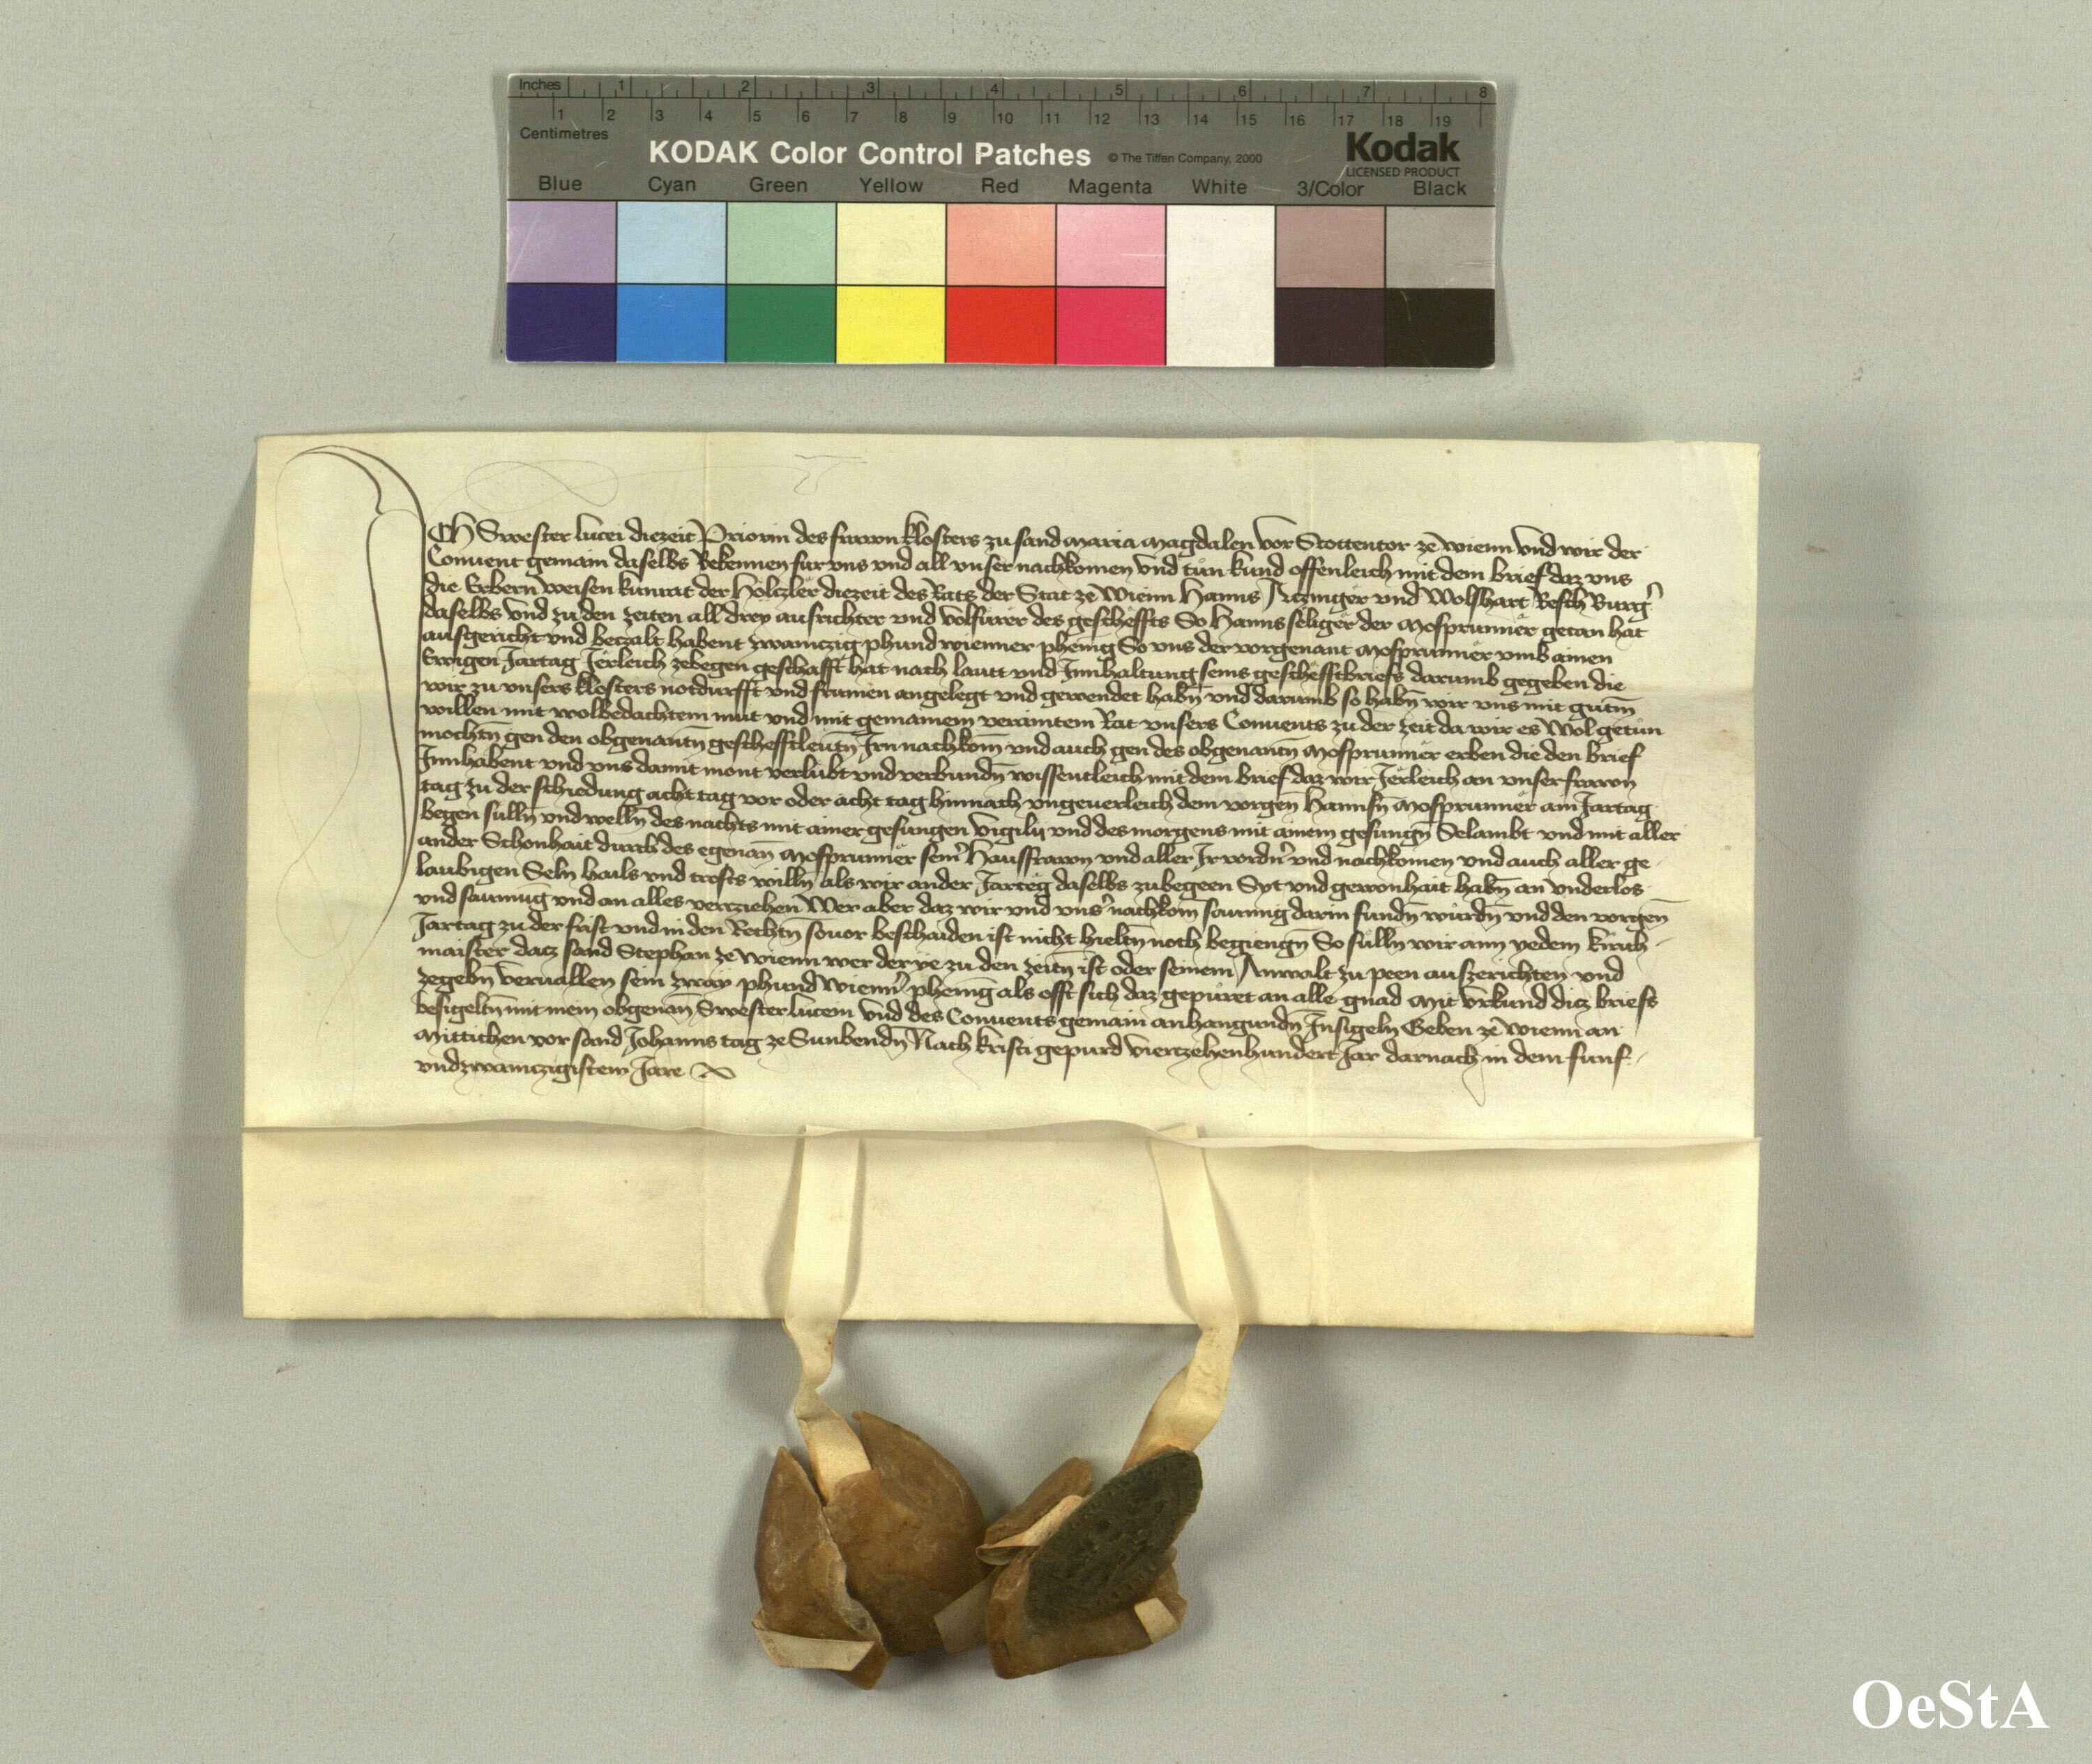 Inches 1 2 3 4 5 6 7 8
1 2 3 4 5 6 7 8 9 10 11 12 13 14 15 16 17 18 19
Centimetres
KODAK Color Control Patches © The Tiffen Company, 2000 Kodak
LICENSED PRODUCT
Blue Cyan Green Yellow Red Magenta White 3/Color Black
ICH Swester lucei diezeit Priorin des frawn klosters zu sand Maria Magdalen vor Schottentor ze wienn Vnd wir der
Conuent gemain daselbs Bekennen fur vns vnd all vnser nachkomen Vnd tůn kund offenleich mit dem brief daz vns
die Erbern weisen kunrat der Hölczler diezeit des Rats der Stat ze wienn Hanns vnd Wolfhart Resch Burg̉
daselbs Vnd zu den zeiten all drey ausrichter vnd volfürer des gescheffts So Hanns seliger der Mosprunner getan hat
ausgericht vnd beczalt habent zwainczig phund wienner phenig So vns der vorgenant Mosprunner vmb ainen
Ewigen Jartag Jerleich zebegen geschafft hat nach lautt vnd Innhaltung seins gescheftbriefs darumb gegeben die
wir zu vnsers klosters notdurfft vnd frumen angelegt vnd gewendet habn̄ vnd darumb so habn̄ wir vns mit gutm̄
willen mit wolbedachtem můt vnd mit gemainem veraintem Rat vnsers Conuents zu der zeit da wir es Wol getůn
mochtn̄ gen den obgenantn̄ gescheftleutn̄ Irn nachkom̄ vnd auch gen des obgenantn̄ Mosprunner erben die den brief
Innhabent vnd vns damit mont verlubt vnd verbundn̄ wissentleich mit dem brief daz wir Jerleich an vnser frawn
tag zu der schiedung acht tag vor oder acht tag hinnach vngeuerleich dem vorgen̄ Hannsn̄ Mosprunner ain Jartag
begen sulln̄ vnd welln̄ des nachts mit ainer gesungen Vigilij vnd des morgens mit ainem gesungn̄ Selambt vnd mit aller
ander Schonhait durch des egenan̄ Mosprunner sein̉ Hausfrawn vnd aller Ir vordn̉ vnd nachkomen vnd auch aller ge-
laubigen Seln hails vnd trosts willn̄ als wir ander Jarteg daselbs zubegeen Syt vnd gewonhait habn̄ an Vnderlos
vnd saumūg vnd an alles verczziehen Wer aber daz wir vnd vns̉ nachkom̄ saumig darin fundn̄ wurdn̄ vnd den vorgen̄
Jartag zu der frist vnd in den Rechtn̄ souor beschaiden ist nicht hieltn̄ noch begiengn̄ So sulln̄ wir ainn yedem kirch-
maister dacz sand Stephan ze wienn wer der ye zu den zeitn̄ ist oder seinem Anwalt zu peen auszerichten vnd
zegebn̄ veruallen sein zway phund wienn̉ phenīg als offt sich daz gepuret an alle gnad Mit Vrkund dicz briefs
besigeltn̄ mit mein obgenan̄ Swester lucein Vnd des Conuents gemain anhangundn̄ Insigeln Geben ze wienn an
Mittichen vor sand Johanns tag ze Sunbendn̄ Nach kristi gepurd Vierczehenhundert Jar darnach in dem funf-
vndzwainczigistem Jare
OeStA